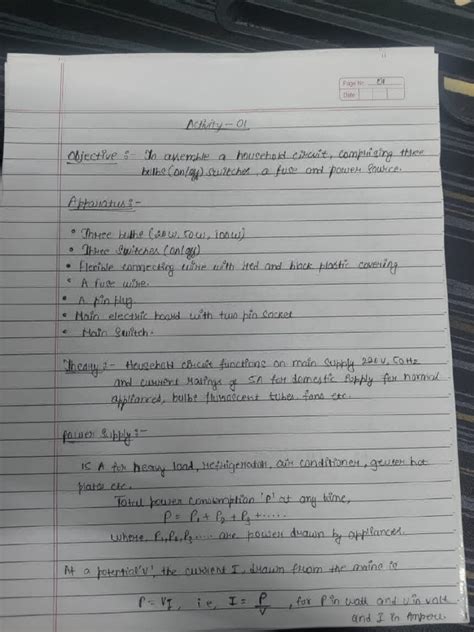 Page No. 01
Date
Activity - 01
Objective :- To assemble a household circuit, comprising three
bulbs (on/off) switches, a fuse and power source.
Apparatus :-
• Three bulbs (20W, 50W, 100W)
• Three switches (on/off)
• Flexible connecting wire with red and black plastic covering
• A fuse wire.
• A pin plug
• Main electric board with two pin socket
• Main Switch.
Theory :- Household circuit functions on main supply 220V, 50Hz
and current ratings of 5A for domestic supply for normal
appliances, bulbs flurescent tubes, fans etc.
Power Supply :-
15 A for heavy load, refrigerator, air conditioner, geyser hot
plates etc.
Total power consumption 'P' at any time,
P = P1 + P2 + P3 + ......
where, P1, P2, P3 .... are power drawn by appliances.
At a potential 'V', the current I, drawn from the mains is
P = VI, i.e, I = P/V, for P in watt and v in volt
and I in Ampere.